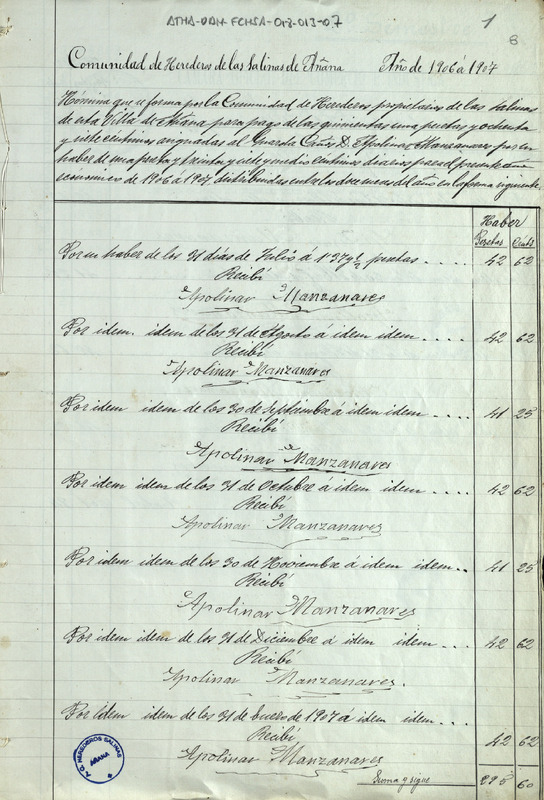 ATHA-DAH-FCHSA-013-013-07
1
8
Comunidad de Herederos de las Salinas de Añana Año de 1906 á 1907
Nómina que se forma por la Comunidad de Herederos propietarios de las Salinas
de esta Villa de Añana para pago de las quinientas una pesetas y ochenta
y siete céntimos asignadas al Guarda D. Apolinar Manzanares por su
haber de una peseta y treinta y siete y medio céntimos diarios para el presente año
económico de 1906 á 1907, distribuidas entre los doce meses del año en la forma siguiente
Haber
Pesetas Cénts
Por su haber de los 31 días de Julio á 1'37 y 1/2 pesetas .... 42 62
Recibí
Apolinar Manzanares
Por idem. idem de los 31 de Agosto á idem idem ..... 42 62
Recibí
Apolinar Manzanares
Por idem idem de los 30 de Septiembre á idem idem .... 41 25
Recibí
Apolinar Manzanares
Por idem idem de los 31 de Octubre á idem idem .... 42 62
Recibí
Apolinar Manzanares
Por idem idem de los 30 de Noviembre á idem idem .. 41 25
Recibí
Apolinar Manzanares
Por idem idem de los 31 de Diciembre á idem idem ... 42 62
Recibí
Apolinar Manzanares.
Por idem idem de los 31 de Enero de 1907 á idem idem ....
Recibí 42 62
Apolinar Manzanares
Suma y sigue 295 60
HEREDEROS SALINAS
AÑANA